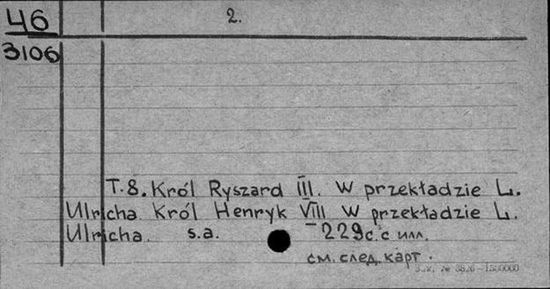 46
3106
2.
T.8. Król Ryszard III. W przekładzie L.
Ulricha. Król Henryk VIII W przekładzie L.
Ulricha. s.a. 229 с. с илл.
см. след. карт.